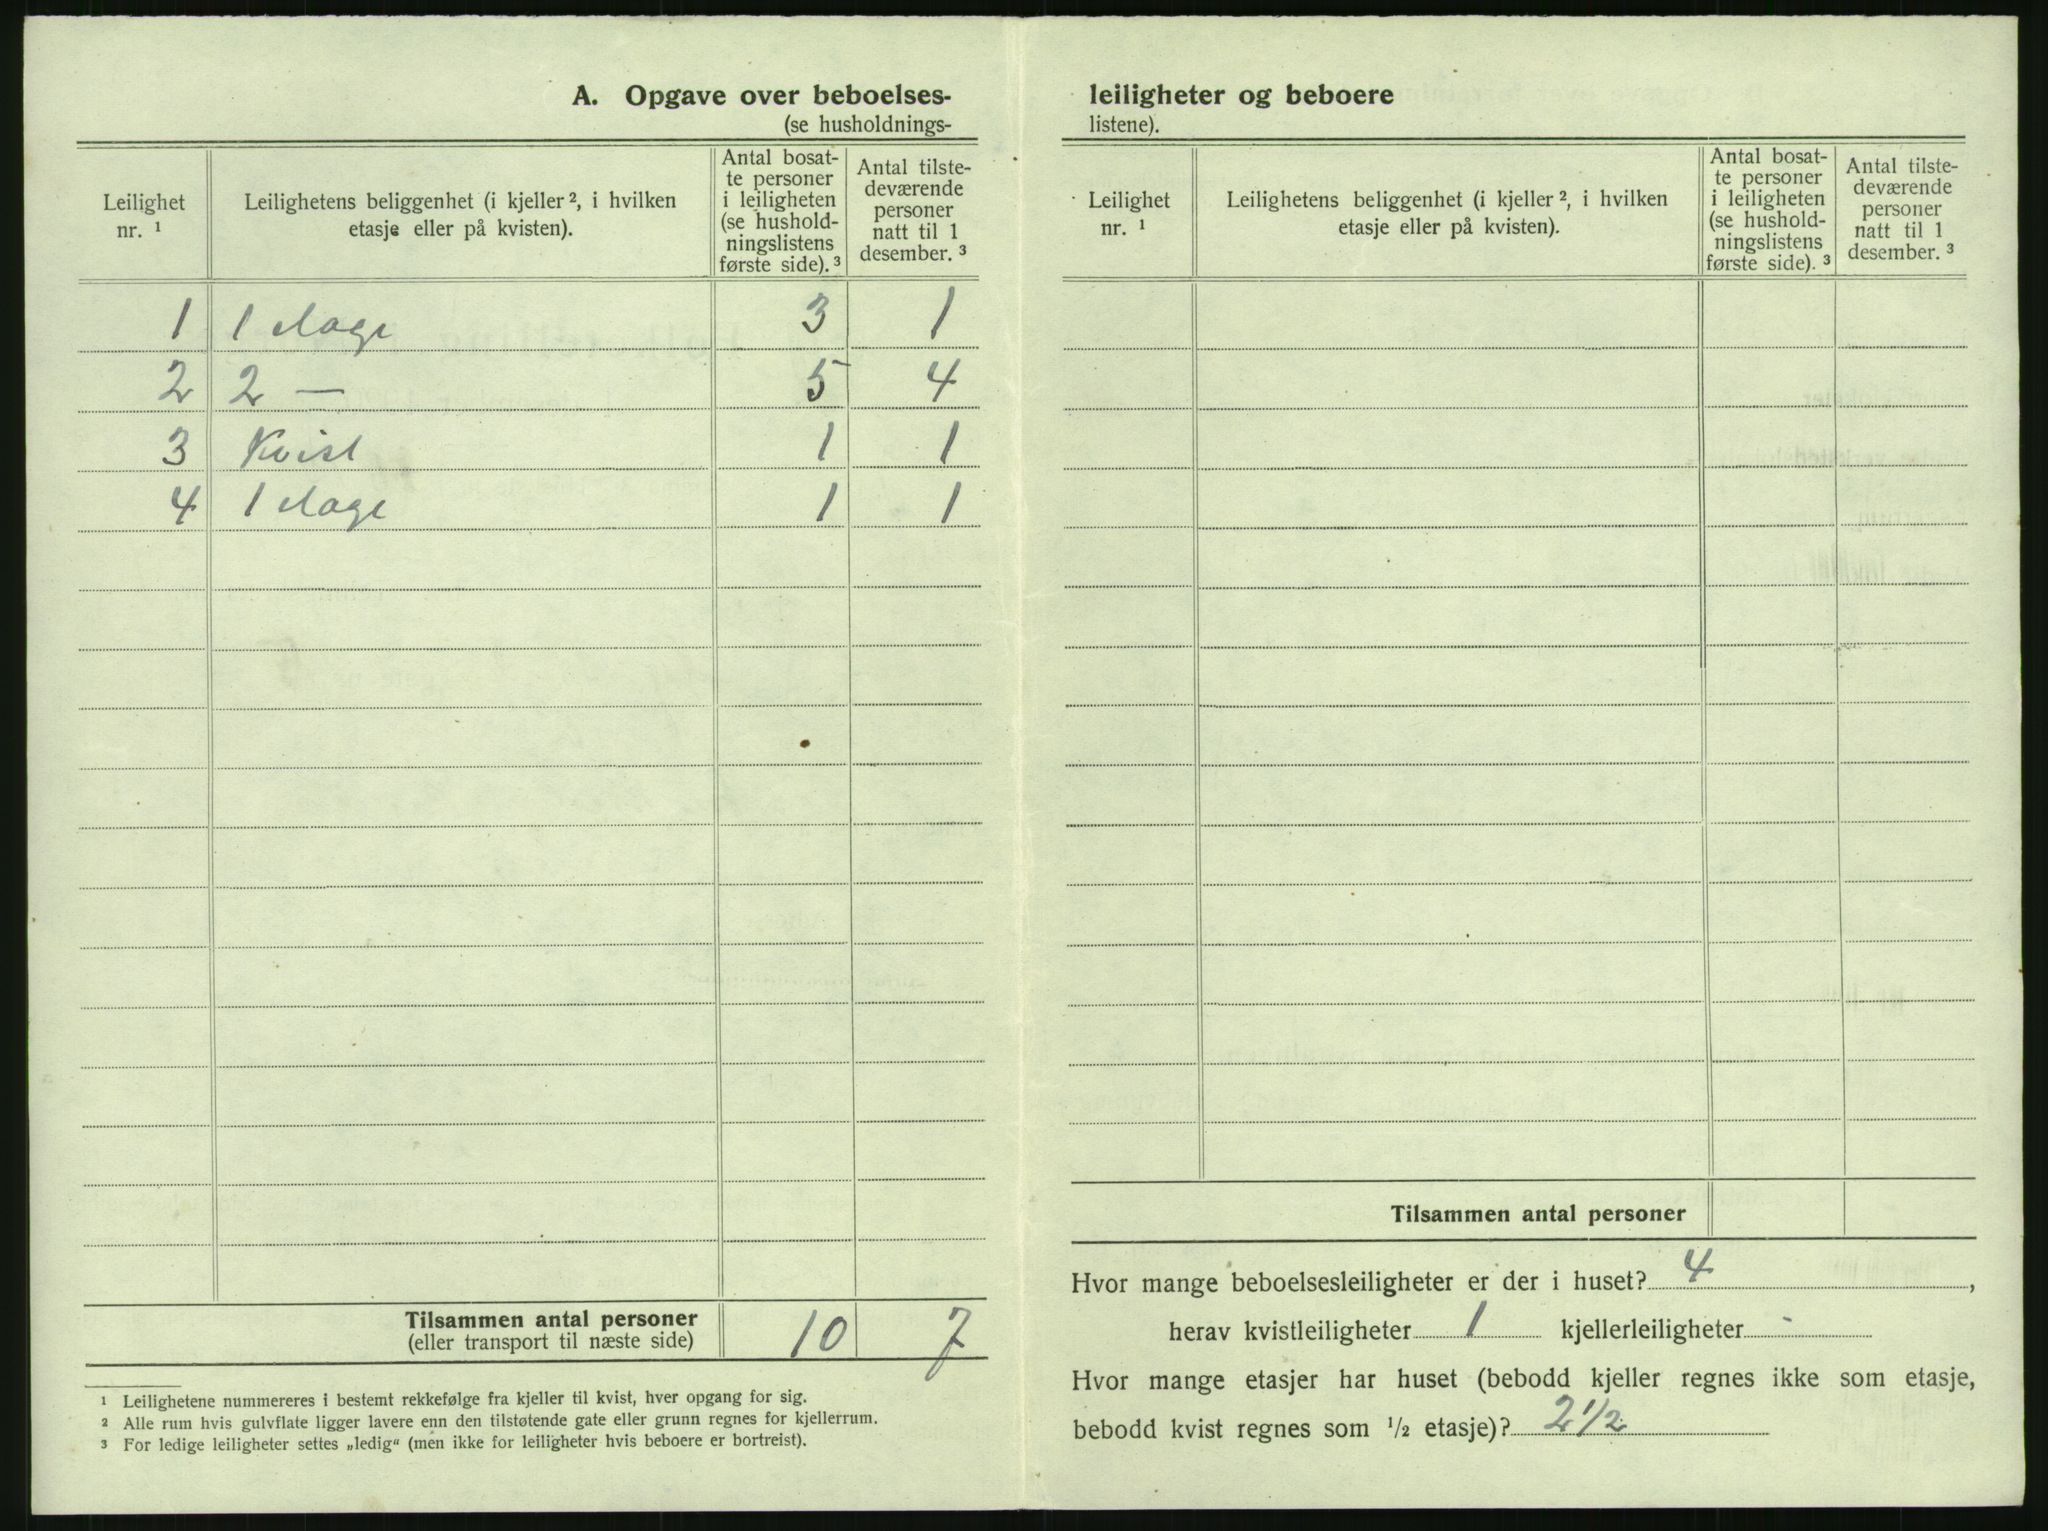 A. Opgave over beboelses-
(se husholdnings-
Leilighet nr. ¹
Leilighetens beliggenhet (i kjeller ², i hvilken etasje eller på kvisten).
Antal bosat-te personer i leiligheten (se hushold-ningslistens første side). ³
Antal tilste-deværende personer natt til 1 desember. ³
1 1 etage 3 1
2 2 — 5 4
3 Kvist 1 1
4 1 etage 1 1
Tilsammen antal personer 10 7
(eller transport til næste side)
¹ Leilighetene nummereres i bestemt rekkefølge fra kjeller til kvist, hver opgang for sig.
² Alle rum hvis gulvflate ligger lavere enn den tilstøtende gate eller grunn regnes for kjellerrum.
³ For ledige leiligheter settes „ledig“ (men ikke for leiligheter hvis beboere er bortreist).
leiligheter og beboere
listene).
Leilighet nr. ¹
Leilighetens beliggenhet (i kjeller ², i hvilken etasje eller på kvisten).
Antal bosat-te personer i leiligheten (se hushold-ningslistens første side). ³
Antal tilste-deværende personer natt til 1 desember. ³
Tilsammen antal personer
Hvor mange beboelsesleiligheter er der i huset? 4,
herav kvistleiligheter 1 kjellerleiligheter -
Hvor mange etasjer har huset (bebodd kjeller regnes ikke som etasje,
bebodd kvist regnes som 1/2 etasje)? 2 1/2